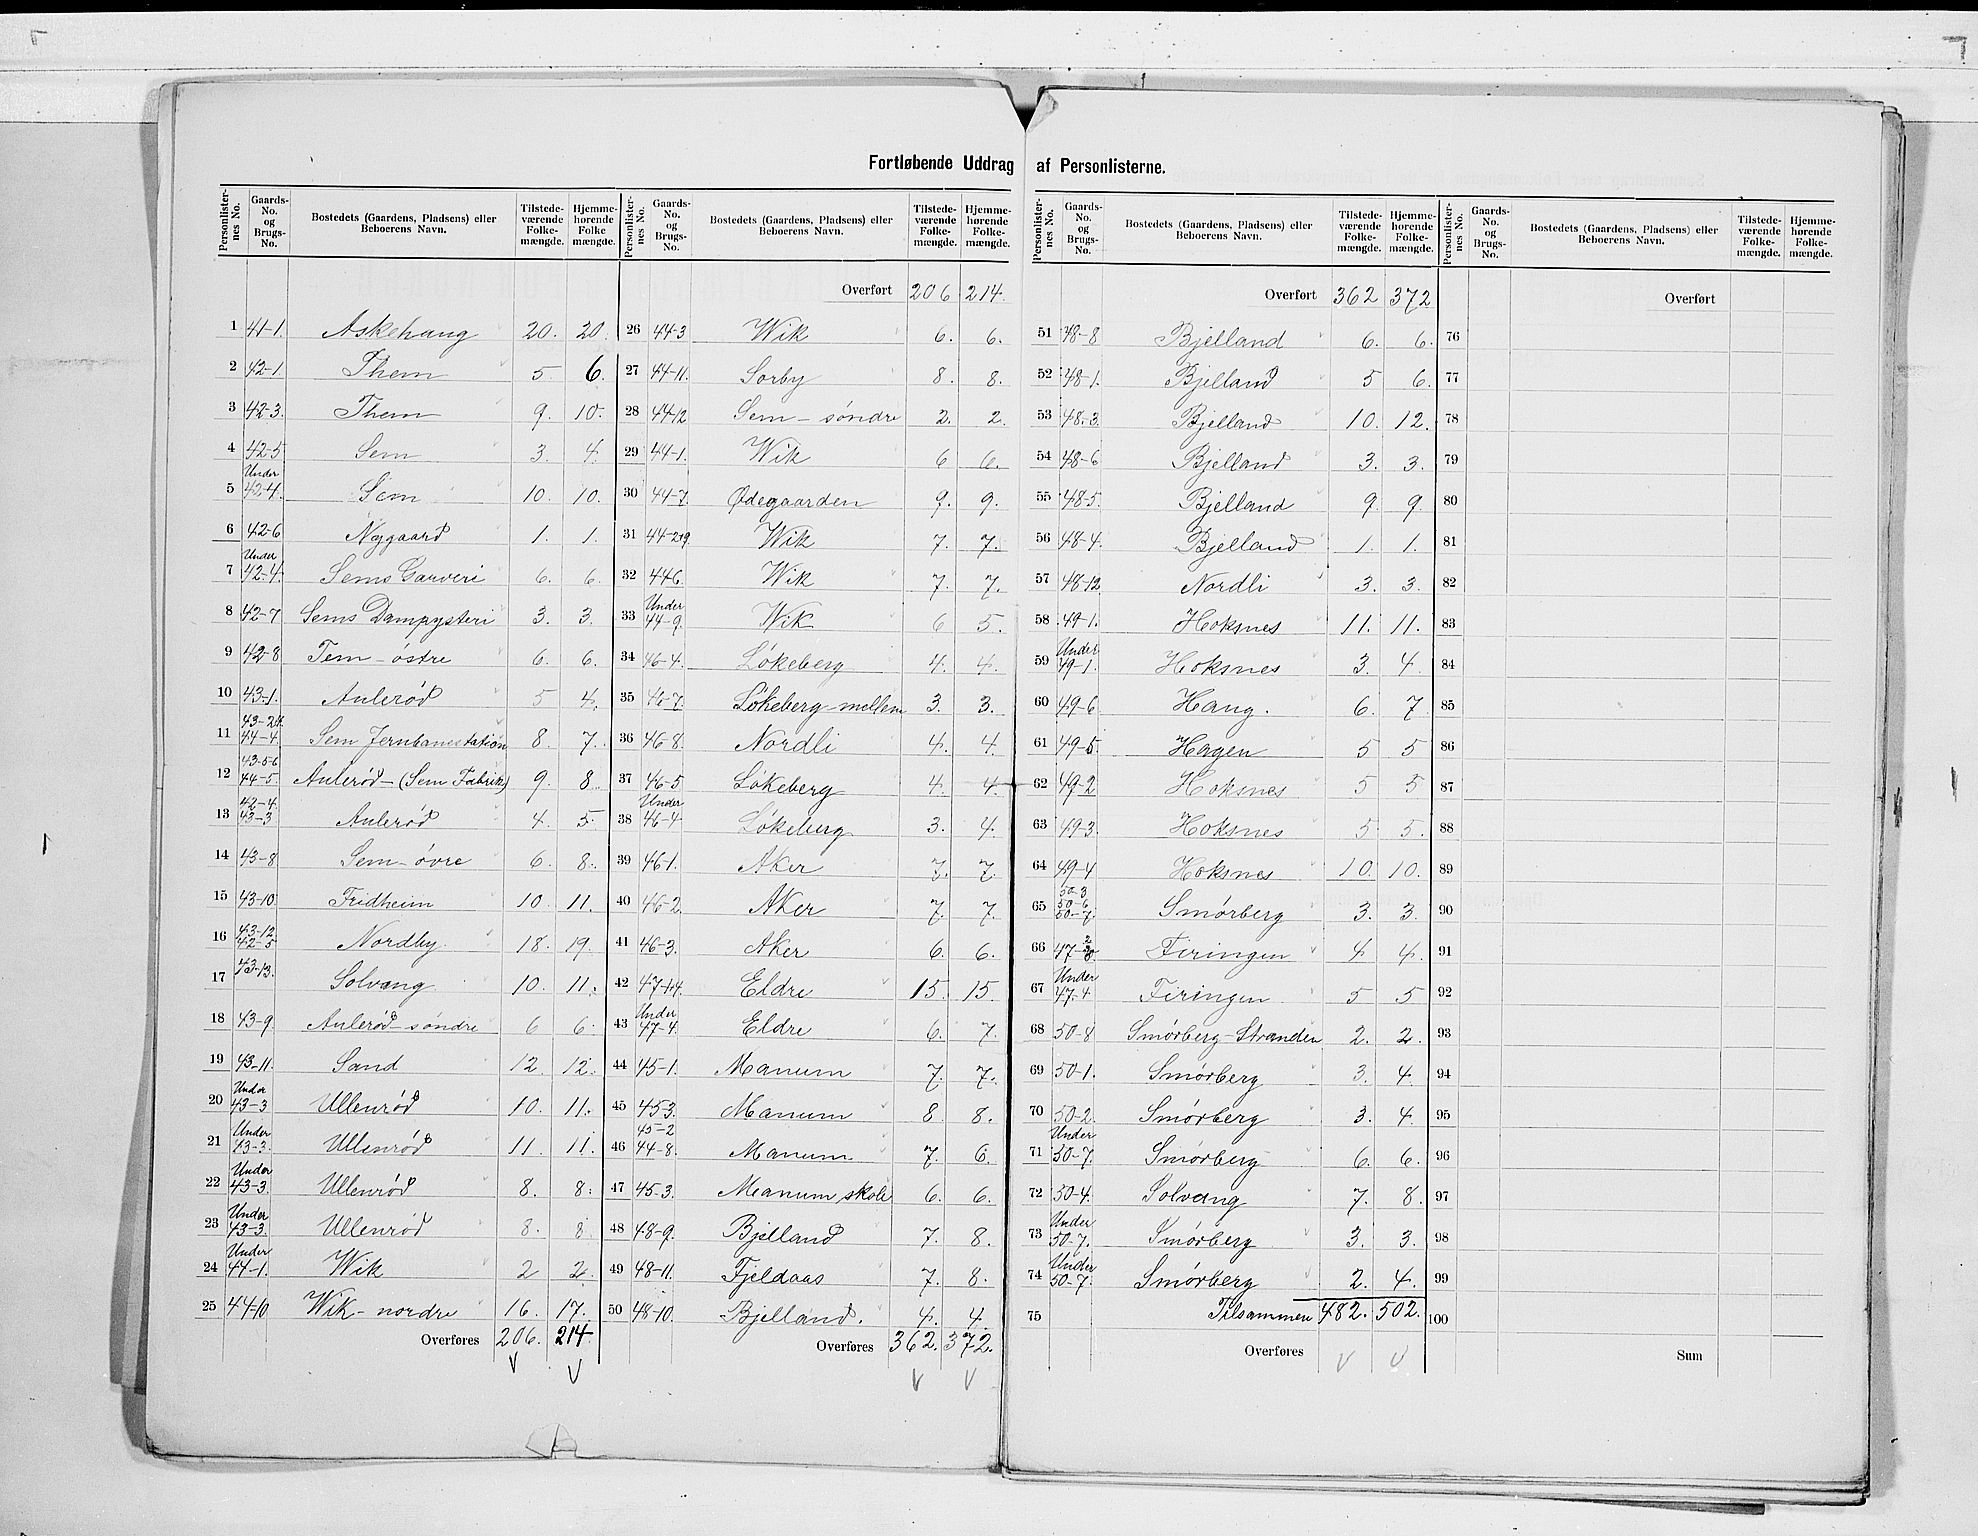 Fortløbende Uddrag af Personlisterne.
Personlisternes No. Gaards-No. og Brugs-No. Bostedets (Gaardens, Pladsens) eller Beboerens Navn. Tilstedeværende Folkemængde. Hjemmehørende Folkemængde.
1 41-1. Askehaug 20. 20.
2 42-1. Them 5. 6.
3 42-3. Them 9. 10.
4 42-5 Sem 3. 4.
5 Under 42-4. Sem 10. 10.
6 42-6 Nygaard 1. 1.
7 Under 42-4. Sems Garveri 6. 6.
8 42-7 Sems Dampysteri 3. 3.
9 42-8 Tem-östre 6. 6.
10 43-1. Aulerød 5 4.
11 43-2 44-4. Sem Jernbanestation 8. 7.
12 43-5-6 44-5. Aulerød-(Sem Fabrik) 9. 8.
13 42-4. 43-3 Aulerød 4. 5.
14 43-8 Sem-övre 6. 8.
15 43-10 Fridheim 10. 11.
16 43-12 42-5 Nordby. 18. 19.
17 43-13. Solvang 10. 11.
18 43-9. Aulerød-søndre 6 6.
19 43-11. Sand 12. 12.
20 Under 43-3 Ullenrød 10. 11.
21 Under 43-3. Ullenrød 11. 11.
22 Under 43-3. Ullenrød 8. 8.
23 Under 43-3. Ullenrød 8. 8
24 Under 44-1. Wik 2 2.
25 44-10 Wik-nordre 16. 17.
Overføres 206. 214.
Personlisternes No. Gaards-No. og Brugs-No. Bostedets (Gaardens, Pladsens) eller Beboerens Navn. Tilstedeværende Folkemængde. Hjemmehørende Folkemængde.
Overført 206 214.
26 44-3 Wik 6. 6.
27 44-11. Sorby 8. 8.
28 44-12 Sem-söndre 2. 2.
29 44-1. Wik 6 6.
30 44-7. Ødegaarden 9. 9.
31 44-2+9. Wik 7. 7.
32 44-6. Wik 7. 7.
33 Under 44-9. Wik 6 5.
34 46-4. Løkeberg 4. 4.
35 46-7. Løkeberg-mellem 3. 3.
36 46-8. Nordli 4. 4.
37 46-5 Løkeberg 4. 4.
38 Under 46-4 Løkeberg 3. 4.
39 46-1. Aker 7. 7.
40 46-2. Aker 7. 7.
41 46-3. Aker 6. 6.
42 47-1+4. Eldre 15. 15.
43 Under 47-4. Eldre 6. 7.
44 45-1. Manum 7. 7.
45 45-3. Manum 8 8.
46 45-2 44-8. Manum 7. 6.
47 45-3. Manum skole 6. 6.
48 48-9. Bjelland 7. 8.
49 48-11. Fjeldaas 7. 8.
50 48-10. Bjelland. 4. 4.
Overføres 362. 372.
Personlisternes No. Gaards-No. og Brugs-No. Bostedets (Gaardens, Pladsens) eller Beboerens Navn. Tilstedeværende Folkemængde. Hjemmehørende Folkemængde.
Overført 362 372
51 48-8 Bjelland 6. 6.
52 48-1. Bjelland 5 6.
53 48-3. Bjelland 10. 12.
54 48-6 Bjelland 3. 3.
55 48-5. Bjelland 9. 9.
56 48-4. Bjelland 1. 1.
57 48-12 Nordli 3. 3.
58 49-1. Hoksnes 11. 11.
59 Under 49-1. Hoksnes 3. 4.
60 49-6 Haug. 6. 7.
61 49-5. Hagen 5 5
62 49-2 Hoksnes 5 5
63 49-3. Hoksnes 5 5.
64 49-4 Hoksnes 10. 10.
65 50-3 50-6 50-7. Smørberg 3. 3.
66 47- Firingen 4 4.
67 Under 47-4 Firingen 5 5
68 50-8 Smørberg-Stranden 2. 2.
69 50-1. Smørberg 3. 4.
70 50-2. Smørberg 3. 4.
71 Under 50-7. Smørberg 6. 6.
72 50-4. Solvang 7. 8.
73 Under 50-7. Smørberg 3. 3.
74 Under 50-7. Smørberg 2. 4.
75 Tilsammen 482. 502.
Overføres
Personlisternes No. Gaards-No. og Brugs-No. Bostedets (Gaardens, Pladsens) eller Beboerens Navn. Tilstedeværende Folkemængde. Hjemmehørende Folkemængde.
Overført
76
77
78
79
80
81
82
83
84
85
86
87
88
89
90
91
92
93
94
95
96
97
98
99
100
Sum